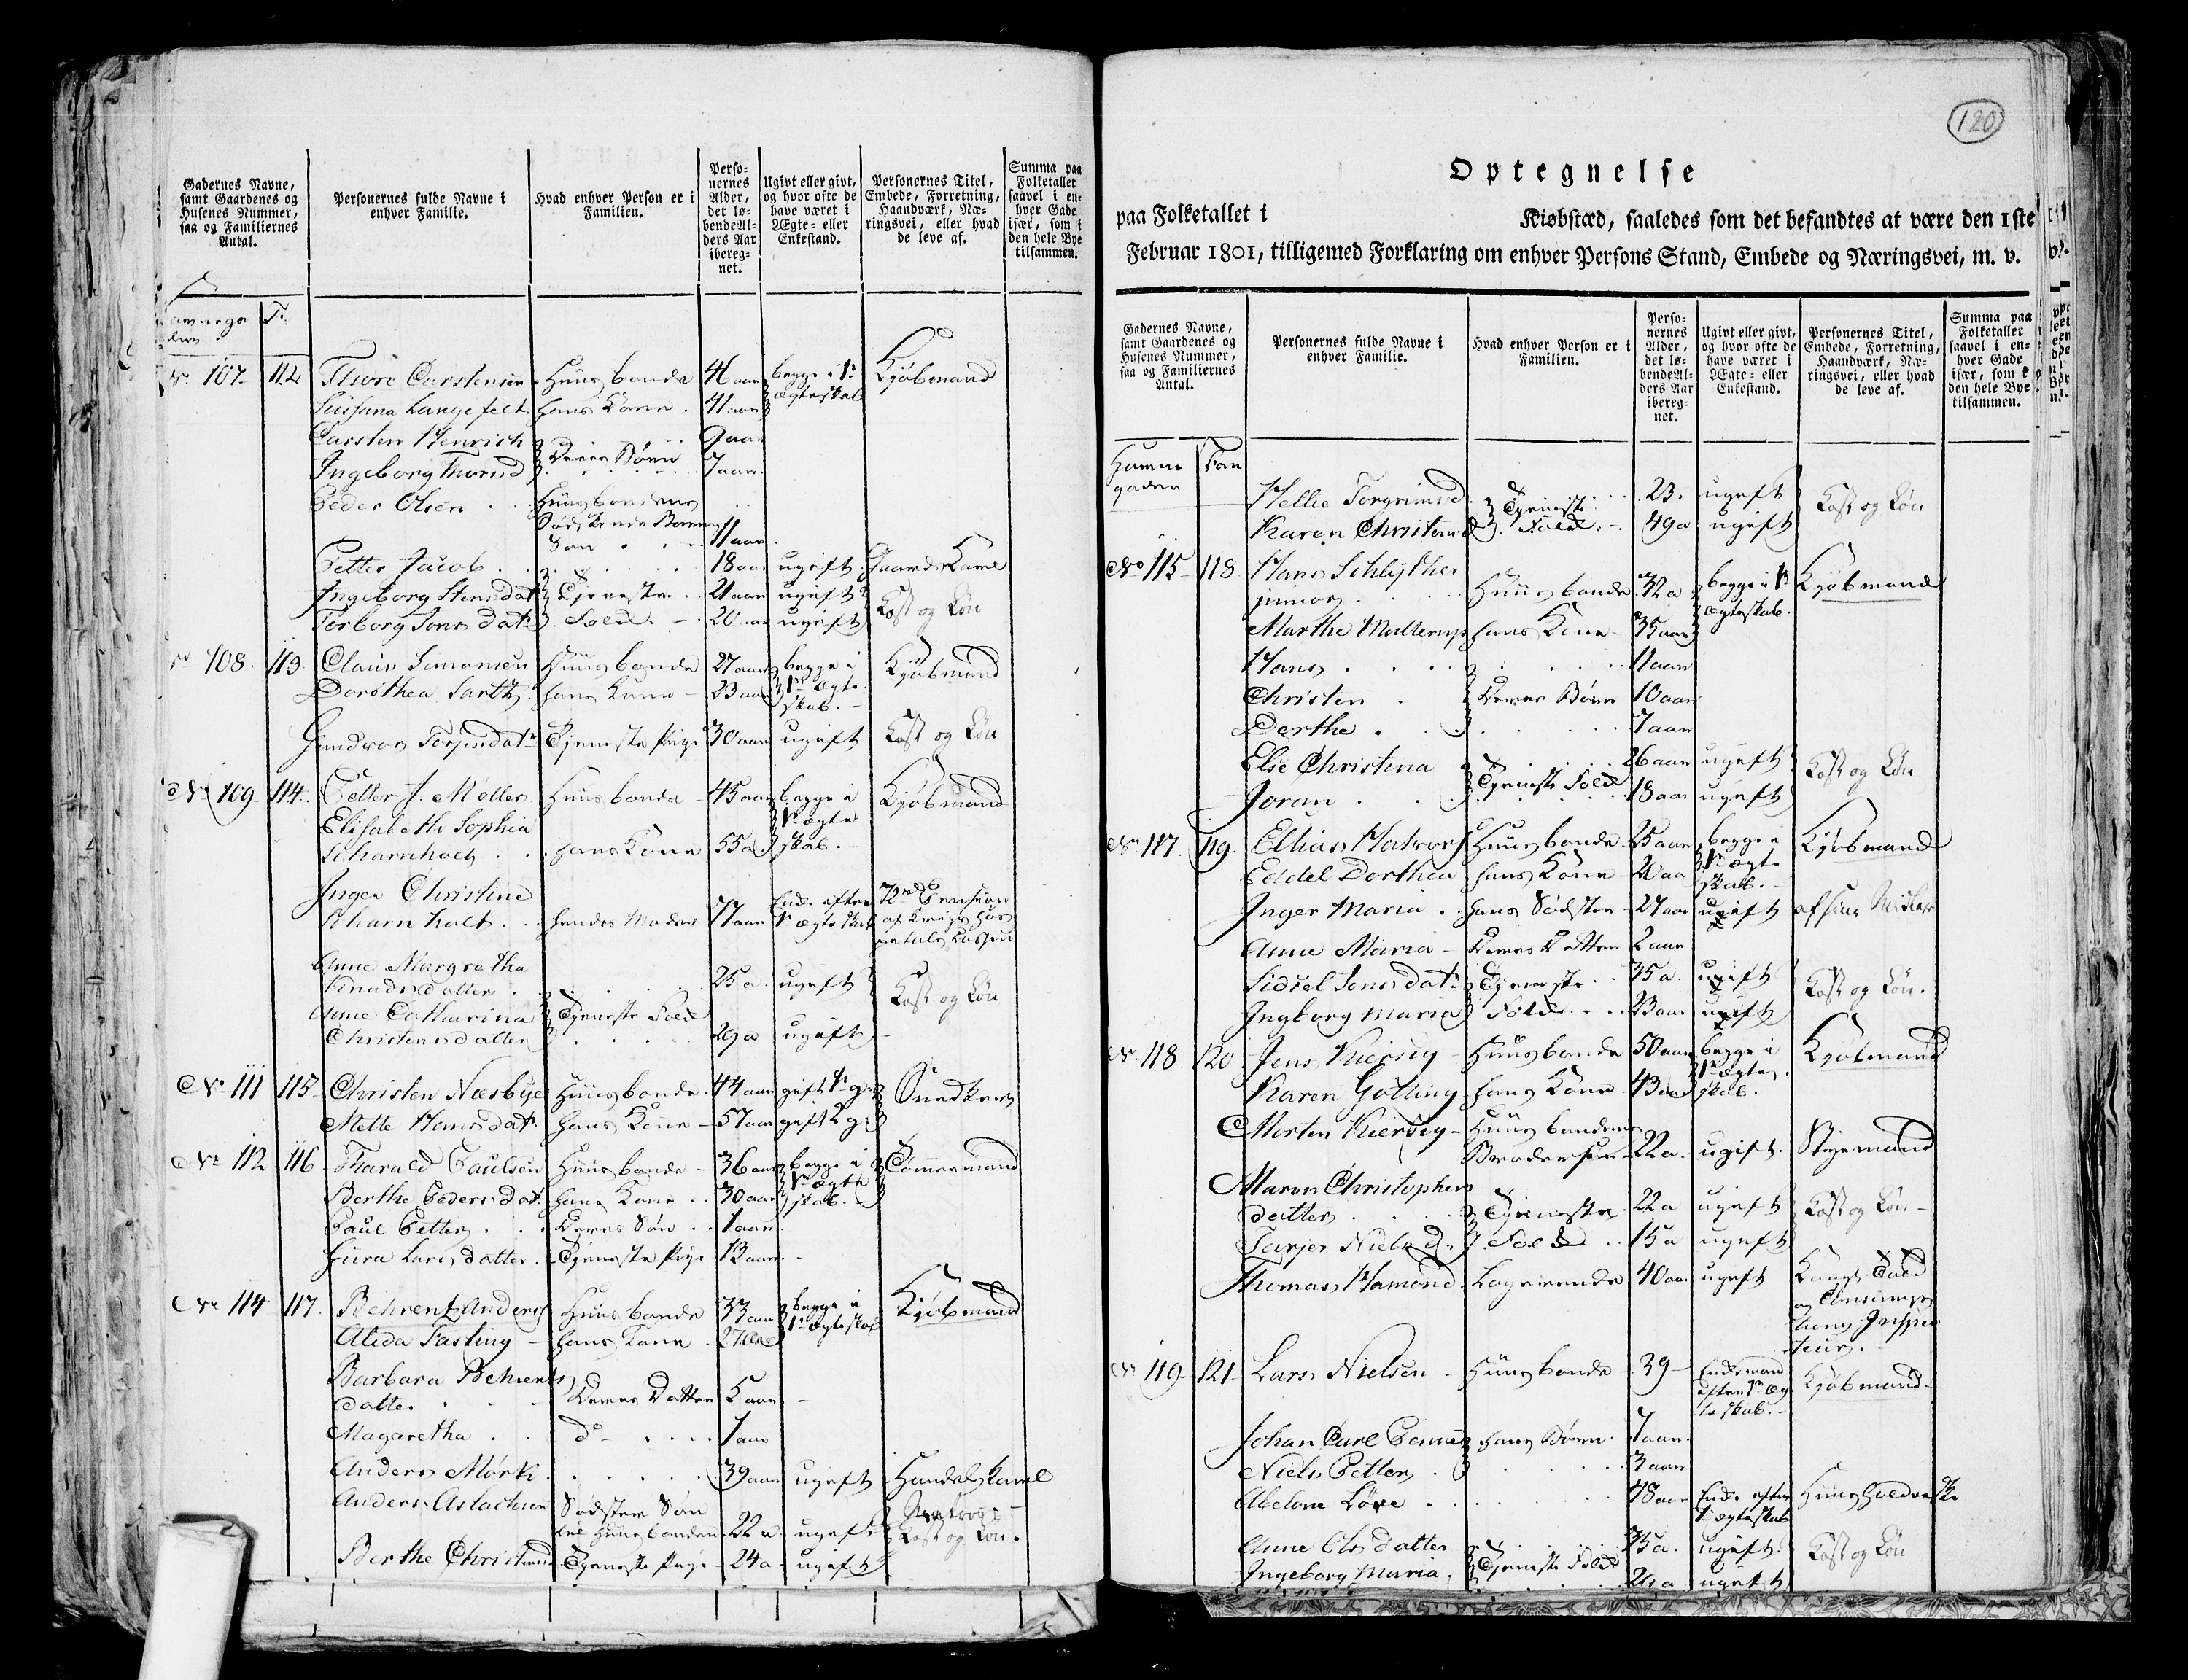 Gadernes Navne, samt Gaardenes og Husenes Nummer, saa og Familiernes Antal.
Personernes fulde Navne i enhver Familie.
Hvad enhver Person er i Familien.
Personernes Alder, det løbende Alders Aar iberegnet.
Ugivt eller givt, og hvor ofte de have været i Ægte- eller Enkestand.
Personernes Titel, Embede, Forretning, Haandværk, Næringsvei, eller hvad de leve af.
Summa paa Folketallet saavel i enhver Gade især, som i den hele Bye tilsammen.
107 112 Thore Carstensen Huusbonde 46 aar begge i 1te Ægteskab Kjøbmand
Sussana Langefelt hans Kone 41 aar
Carsten Henrich Deres Børn 9 aar
Ingeborg Thorsd 7 aar
Peder Olsen Huusbondens
Sødskende Barns
Søn 11 aar
Petter Jacob 18 aar ugift Gaards Karl
Ingeborg Stensdat Tjeneste 21 aar ugift Kost og Løn
Torborg Jons dat Folk 20 aar ugift
108 113 Claus Simonsen Huusbonde 27 aar begge i Kjøbmand
Dorothea Sartz hans Kone 23 aar 1te Ægte
skab
Gundvor Torjusdatr Tjeneste Pige 30 aar ugift Kost og Løn
No 109 114 Petter J. Møller Huusbonde 45 aar begge i Kjøbmand
Elisabeth Sophia 1te Ægte
Scharnholt hans Kone 55 a skab
Inger Christine Enke efter 72 rd Pension
Scharnholt hendes Moder 77 aar 1te Ægteskab af Krigs Hos
pitals Kassen
Anne Margretha
Knudsdatter 25 a ugift Kost og Løn
Anne Catharina Tjeneste Folk
Christensdatter 29 a ugift
No 111 115 Christen Næsbye Huusbonde 44 aar gift 1te g Snedker
Mette Hansdat hans Kone 57 aar gift 2 g
No 112 116 Tharald Paulsen Huusbonde 36 aar begge i Tømmermand
Berthe Pedersdat hans Kone 30 aar 1te Ægte
skab
Paul Petter Deres Søn 1 aar
Gura Larsdatter Tjeneste Pige 13 aar
No 114 117 Behrent Anders Huusbonde 33 aar begge i Kjøbmand
Alida Fasting hans Kone 27 aar 1te Ægteskab
Barbara Behrents
datter Deres Datter 5 aar
Magaretha do 1 aar
Anders Mørk 39 aar ugift Handels Karl
Anders Aslachsen Sødsters Søn
til Huusbonden 22 a ugift Kost og Løn
Berthe Christensd Tjeneste Pige 24 a ugift
120
Optegnelse
paa Folketallet i Kiøbstæd, saaledes som det befandtes at være den 1ste
Februar 1801, tilligemed Forklaring om enhver Persons Stand, Embede og Næringsvei, m. v.
Gadernes Navne, samt Gaardenes og Husenes Nummer, saa og Familiernes Antal.
Personernes fulde Navne i enhver Familie.
Hvad enhver Person er i Familien.
Personernes Alder, det løbende Alders Aar iberegnet.
Ugivt eller givt, og hvor ofte de have været i Ægte- eller Enkestand.
Personernes Titel, Embede, Forretning, Haandværk, Næringsvei, eller hvad de leve af.
Summa paa Folketallet saavel i enhver Gade især, som i den hele Bye tilsammen.
Fam
gaden
Hellie Torgrimsd Tjeneste 23 ugift Kost og Løn
Karen Christensd Folk 49 a ugift
No 115 118 Hans Schlyther
junior Huusbonde 32 a begge i 1te Kjøbmand
Marthe Mallerup hans Kone 35 aar Ægteskab
Hans 11 aar
Christen Deres Børn 10 aar
Dorthe 7 aar
Else Christina 26 aar ugift Kost og Løn
Joran Tjeneste Folk 18 aar ugift
No 117 119 Ellias Halvors Huusbonde 25 aar begge i Kjøbmand
Eddel Dorthea hans Kone 20 aar 1te Ægte
skab
Inger Maria hans Sødster 27 aar ugift af sine Midler
Anne Maria Deres Datter 2 aar
Sidsel Jonsdatr Tjeneste 35 a ugift Kost og Løn
Ingborg Maria Folk 23 aar ugift
No 118 120 Jens Kiersig Huusbonde 50 aar begge i Kjøbmand
Karen Gotling hans Kone 43 1te Ægte
skab
Morten Kiersig Huusbondens
Brodersøn 22 a ugift Styrmand
Maren Christophers
datter Tjeneste 22 a ugift Kost og Løn
Tarjer Niels d. Folk 15 a ugift
Thomas Hamond Logerende 40 aar ugift Kongl. Told
og Consumptions Inspec
teur
No 119 121 Lars Nielsen Huusbonde 39 Enkemand Kjøbmand
efter 1te Æg
teskab
Johan Carl hans Børn 7 aar
Niels Petter 3 aar
Abelone Løve 48 aar Enke efter Huusholderske
1te Ægteskab
Anne Olsdatter Tjeneste Folk 35 a ugift Kost og Løn
Ingeborg Maria ugift